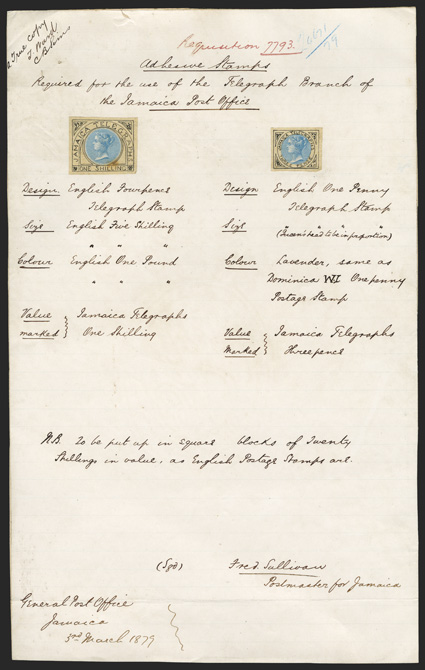 a True copy
Requisition 7793.
Adhesive Stamps
Required for the use of the Telegraph Branch of
the Jamaica Post Office
JAMAICA TELEGRAPHS
ONE SHILLING
Design English Fourpence
Telegraph Stamp
Size English Five Shilling
" " "
Colour English One Pound
" " "
Value } Jamaica Telegraphs
marked } One Shilling
Design English One Penny
Telegraph Stamp
Size
(Queen's head to be in proportion)
Colour Lavender, same as
Dominica WI One penny
Postage Stamp
Value } Jamaica Telegraphs
Marked } threepence
N.B. To be put up in square blocks of Twenty
Shillings in value, as English Postage Stamps are.
(Sgd) Fred Sullivan
Postmaster for Jamaica
General Post Office
Jamaica
3rd March 1879